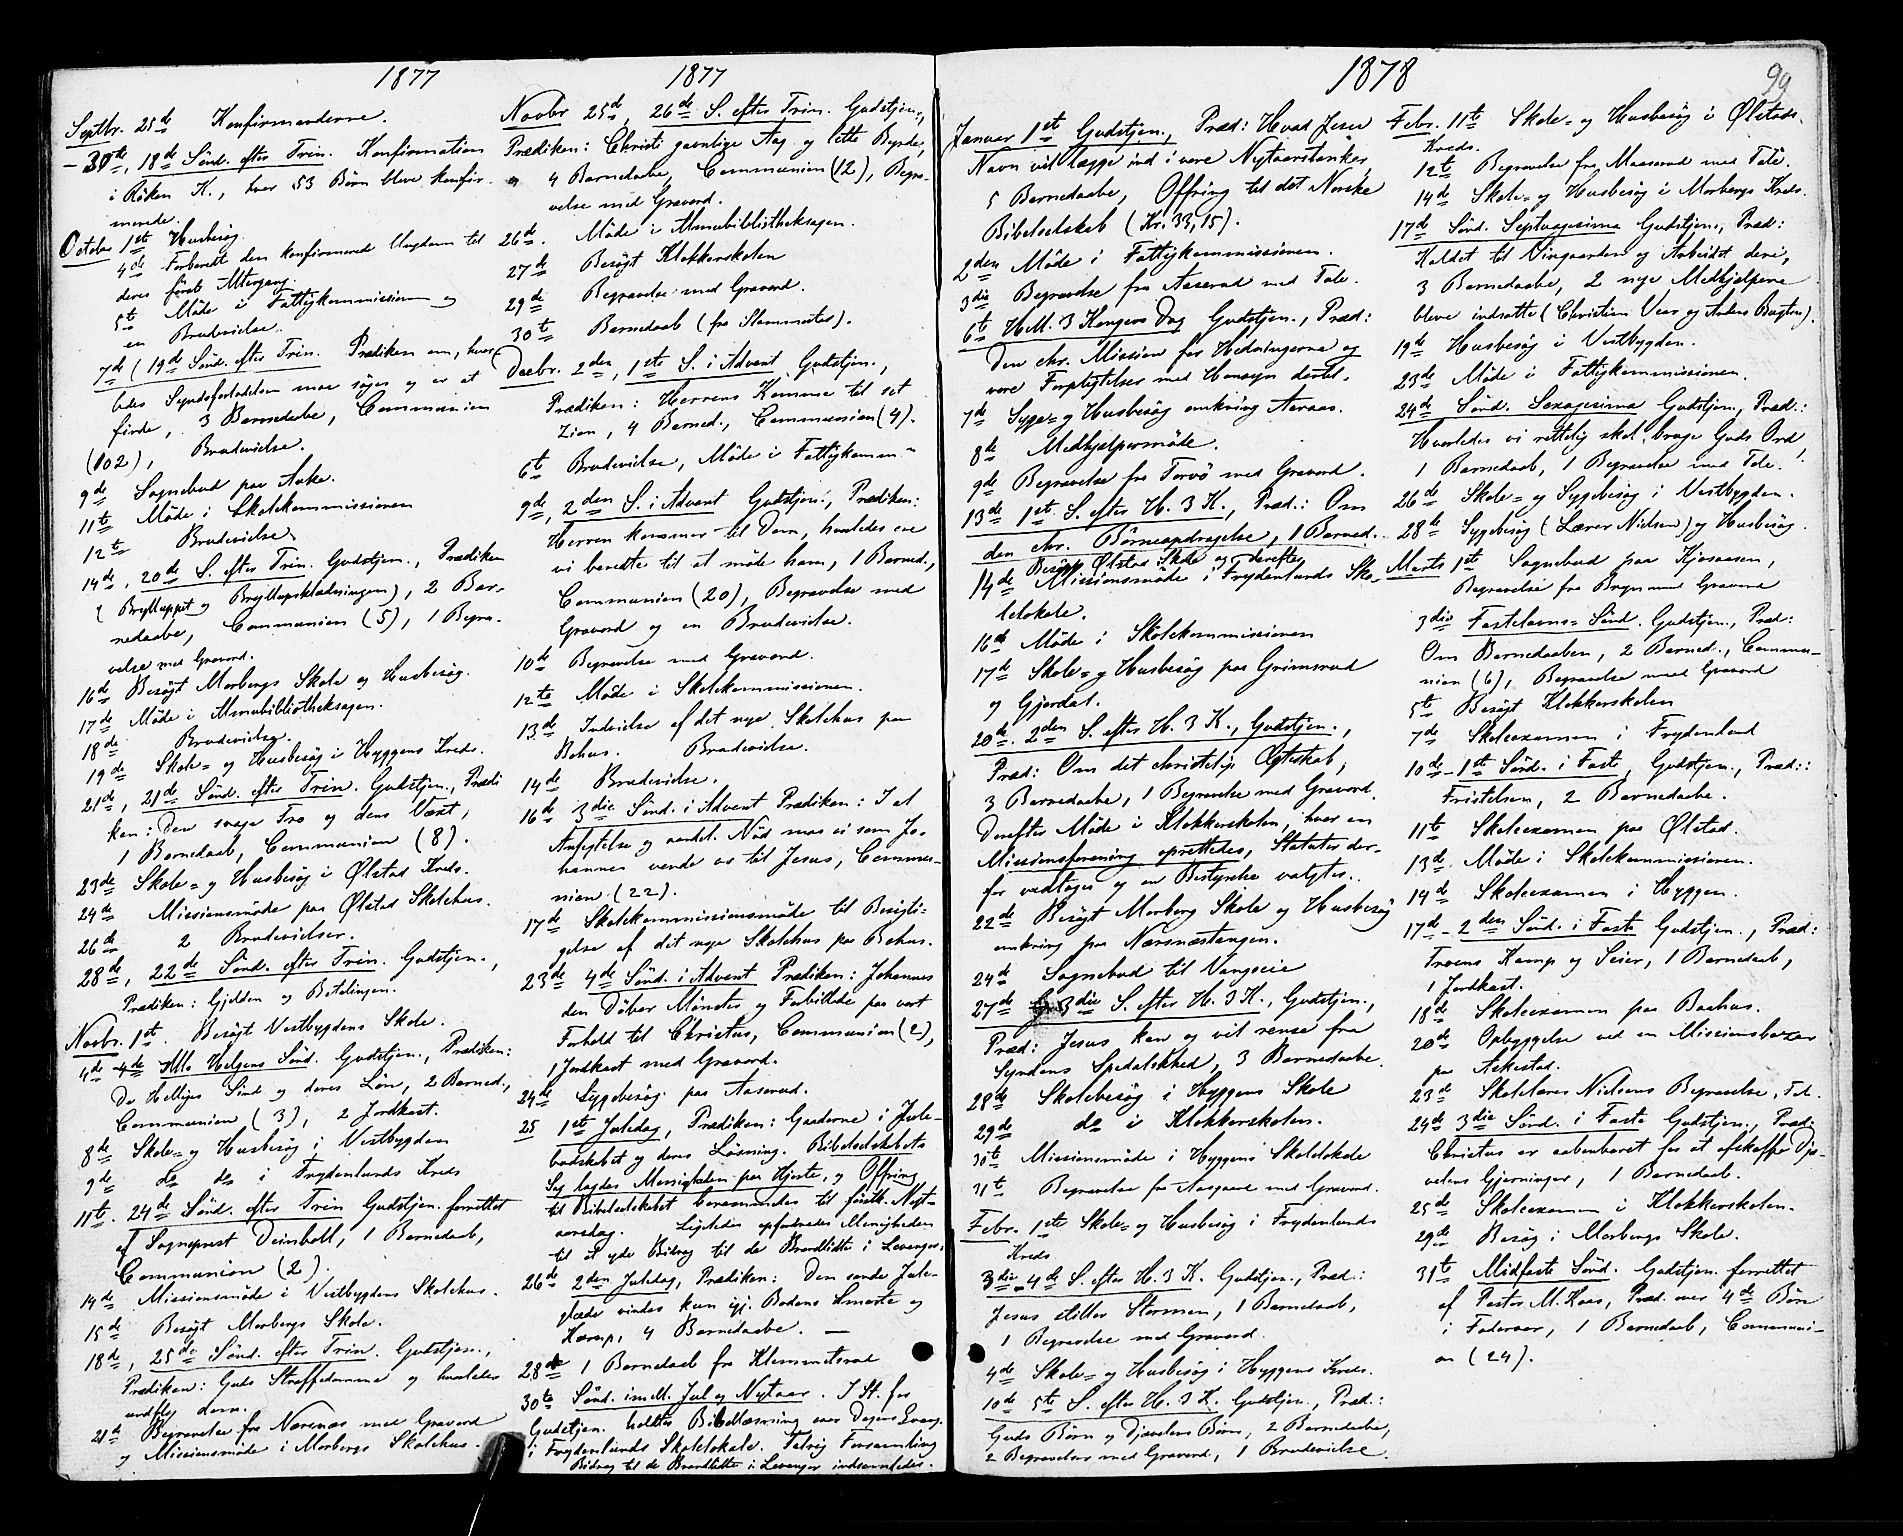 1877
Septbr. 25de Konfirmanderne.
— 30te, 18de Sönd. efter Trin. Konfirmation
i Röken K., hvor 53 Börn bleve konfir-
merede.
October 1ste Husbesög.
4de Forberedt den konfirmerede Ungdom til
deres förste Altergang.
5te Möde i Fattigkommissionen og
en Brudevielse.
7de (19de Sönd. efter Trin. Prædiken om, hvor
ledes Syndsforladelsen maa söges og er at
finde, 3 Barnedaabe, Communion
(102), Brudevielse.
9de Sognebud paa Aake.
11te Möde i Skolekommissionen
12te Brudevielse
14de, 20de S. efter Trin. Gudstjen., Prædiken
(Brylluppet og Bryllupsklædningen), 2 Bar-
nedaabe, Communion (5), 1 Begra-
velse med Gravord.
16de Besögt Morbergs Skole og Husbesög.
17de Möde i Almubibliotheksagen.
18de Brudevielse.
19de Skole- og Husbesög i Hyggens Kreds.
21de, 21de Sönd. efter Trin. Gudstjen., Prædi
ken: Den svage Tro og dens Væxt,
1 Barnedaab, Communion (8).
23de Skole- og Husbesög i Ølstad Kreds.
24de Missionsmöde paa Ølstad Skolehus.
26de 2 Brudevielser.
28de, 22de Sönd. efter Trin. Gudstjen.,
Prædiken: Gjelden og Betalingen.
Novbr. 1ste. Besögt Vestbygdens Skole.
4de Alle Helgens Sönd. Gudstjen., Prædiken:
De Helliges Sind og deres Lön, 2 Barned.,
Communion (3), 2 Jordkast.
8de Skole- og Husbesög i Vestbygden
9de do do i Frydenlunds Kreds
11te. 24de Sönd. efter Trin Gudstjen. forrettet
af Sogneprest Deinboll, 1 Barnedaab,
Communion (2).
14de Missionsmöde i Vestbygdens Skolehus.
15de Besögt Morbergs Skole.
18de, 25de Sönd. efter Trin. Gudstjen.,
Prædiken: Guds Straffedomme og hvorledes
undfly dem.
21de Begravelse fra Nærsnæs med Gravord
og Missionsmöde i Morbergs Skolehus.
1877
Novbr 25de, 26de S. efter Trin. Gudstjen.,
Prædiken: Christi gavnlige Aag og lette Byrde,
4 Barnedaabe, Communion (12), Begra-
velse med Gravord.
26de. Möde i Almubibliotheksagen.
27de Besögt Klokkerskolen
29de Begravelse med Gravord.
30te Barnedaab (fra Slemmestad).
Decbr. 2den, 1ste S. i Advent Gudstjen.,
Prædiken: Herrens Komme til set
Zion, 4 Barned., Communion (4).
6te Brudevielse, Möde i Fattigkomm.-n
9de, 2den S. i Advent Gudstjen., Prædiken:
Herren kommer til Dom, hvorledes ere
vi beredte til at möde ham, 1 Barned.,
Communion (20), Begravelse med
Gravord og en Brudevielse.
10de Begravelse med Gravord.
12te Möde i Skolekommissionen.
13de Indvielse af det nye Skolehus paa
Bohus. Brudevielse.
14de Brudevielse.
16de 3die Sönd. i Advent Prædiken: I al
Anfegtelse og aandel. Nöd maa vi som Jo-
hannes vende os til Jesus, Commu-
nion (22).
17de Skolekommissionsmöde til Besigti-
gelse af det nye Skolehus paa Bohus.
23de 4de Sönd. i Advent Prædiken: Johannes
den Döber Mönster og Forbillede paa vort
Forhold til Christus, Communion (2),
1 Jordkast med Gravord.
24de Sygebesög paa Aaserud.
25 1ste Juledag, Prædiken: Gaaderne i Jule-
budskabet og deres Lösning. Bibelselskabets
Sag lagdes Menigheden paa Hjerte, og Offring
til Bibelselskabet berammedes til förstk. Nyt-
aarsdag. Ligeledes opfordredes Menigheden
til at yde Bidrag til de Brandlidte i Levanger.
26de 2den Juledag, Prædiken: Den sande Jule-
glæde vindes kun igj. Bodens Smerte og
Kamp, 4 Barnedaabe. —
28de 1 Barnedaab fra Klemmetsrud
30te Sönd. imell. Jul og Nytaar. I St. for
Gudstjen. holdtes Bibellæsning over Dagens Evang.
i Frydenlunds Skolelokale. Talrig Forsamling
Bidrag til de Brandlidte i Levanger indsamledes.
1878
99
Januar 1ste Gudstjen., Præd: Hvad Jesu
Navn vil lægge ind i vore Nytaarstanker
5 Barnedaabe, Offring til det Norske
Bibelselskab (Kr. 33,15).
2den Möde i Fattigkommissionen.
3die Begravelse fra Aaserud med Tale.
6te Hell. 3 Kongers Dag Gudstjen., Præd:
Den chr. Mission for Hedningerne og
vore Forpligtelser med Hensyn dertil.
7de Syge- og Husbesög omkring Aaraas.
8de Medhjelpermöde.
9de Begravelse fra Torvö med Gravord.
13de 1ste S. efter H. 3 K., Præd.: Om
den chr. Börneopdragelse, 1 Barned.
Besögt Ølstad Skole og derefter
14de Missionsmöde i Frydenlunds Sko-
lelokale.
16de Möde i Skolekommissionen
17de Skole- og Husbesög paa Grimsrud
og Gjerdal.
20de. 2den S. efter H. 3 K., Gudstjen.,
Præd: Om det christelige Ægteskab,
3 Barnedaabe, 1 Begravelse med Gravord.
Derefter Möde i Klokkerskolen, hvor en
Missionsforening oprettedes, Statuter der-
for vedtoges og en Bestyrelse valgtes.
22de Besögt Morberg Skole og Husbesög
omkring paa Nærsnæstangen.
24de Sognebud til Vangseie
27de 3die S. efter H. 3 K., Gudstjen.,
Præd: Jesus kan og vil rense fra
Syndens Spedalskhed, 3 Barnedaabe.
28de Skolebesög i Hyggens Skole
29de do i Klokkerskolen.
30te Missionsmöde i Hyggens Skolelokale
31te Begravelse fra Aasgaard med Gravord.
Febr. 1ste Skole- og Husbesög i Frydenlunds
Kreds
3die 4de S. efter H. 3 K. Gudstjen., Præd.:
Jesus stiller Stormen, 1 Barnedaab,
1 Begravelse med Gravord.
4de Skole- og Husbesög i Hyggens Kreds.
10de 5te S. efter H. 3 K. Gudstjen., Præd.:
Guds Börn og Djævelens Börn, 2 Barnedaabe,
2 Begravelser med Gravord, 1 Brudevielse.
Febr. 11te Skole- og Husbesög i Ølstads
Kreds.
12te Begravelse fra Maaserud med Tale.
14de Skole- og Husbesög i Morbergs Kreds.
17de Sönd. Septuagesima Gudstjen., Præd:
Kaldet til Vingaarden og Arbeidet deri,
3 Barnedaabe, 2 nye Medhjelpere
bleve indsatte (Christian Vear og Anders Bøgton).
19de Husbesög i Vestbygden.
23de Möde i Fattigkommissionen.
24de Sönd. Sexagesima Gudstjen., Præd.:
Hvorledes vi rettelig skal bruge Guds Ord,
1 Barnedaab, 1 Begravelse med Tale.
26de Skole- og Sygebesög i Vestbygden.
28de Sygebesög (Lærer Nielsen) og Husbesög.
Marts 1ste Sognebud paa Kjosaasen,
Begravelse fra Bryn med Gravord
3die Fastelavns-Sönd. Gudstjen., Præd:
Om Barnedaaben, 2 Barned., Commu-
nion (6), Begravelse med Gravord
5te Besögt Klokkerskolen
7de Skoleexamen i Frydenlund
10de - 1ste Sönd. i Faste, Gudstjen., Præd.:
Fristelsen, 2 Barnedaabe.
11te Skoleexamen paa Ølstad.
13de Möde i Skolekommissionen.
14de Skoleexamen i Hyggen.
17de - 2den Sönd. i Faste Gudstjen., Præd:
Troens Kamp og Seier, 1 Barnedaab,
1 Jordkast.
18de Skoleexamen paa Bohus.
20de Opbyggelse ved en Missionsbazar
paa Aakestad.
23de Skolelærer Nielsens Begravelse, Tale.
24de 3die Sönd. i Faste Gudstjen., Præd:
Christus er aabenbaret for at afskaffe Djæ-
velens Gjerninger, 1 Barnedaab.
25de Skoleexamen i Klokkerskolen.
29de Besög i Morbergs Skole.
31te Midfaste Sönd. Gudstjen. forrettet
af Pastor M. Koss, Præd. over 4de Bön
i Fadervor, 1 Barnedaab, Communi-
on (24).